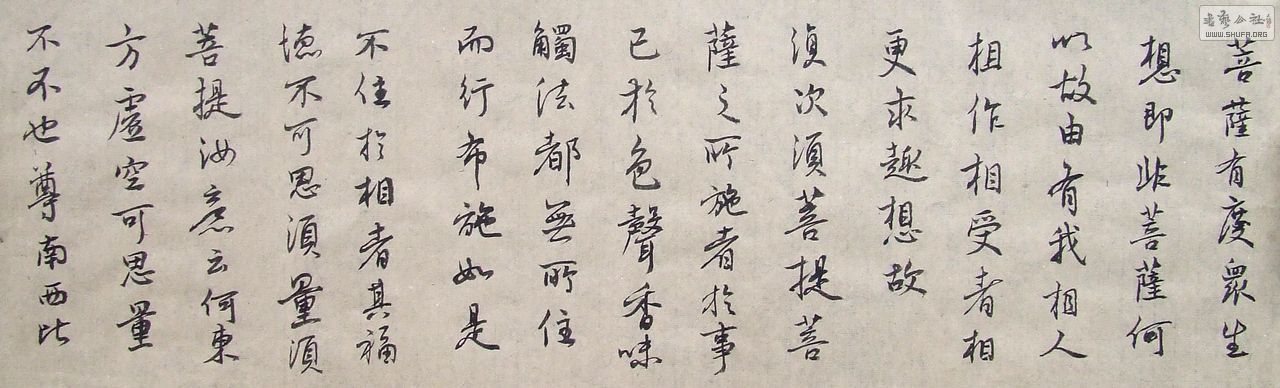 菩薩有度眾生
想即非菩薩何
以故由有我相人
相作相受者相
更求趣想故
復次須菩提菩
薩之所施者於事
已於色聲香味
觸法都無所住
而行布施如是
不住於相者其福
德不可思須量須
菩提汝意云何東
方虛空可思量
不不也尊南西北
書藝公社
WWW.SHUFA.ORG